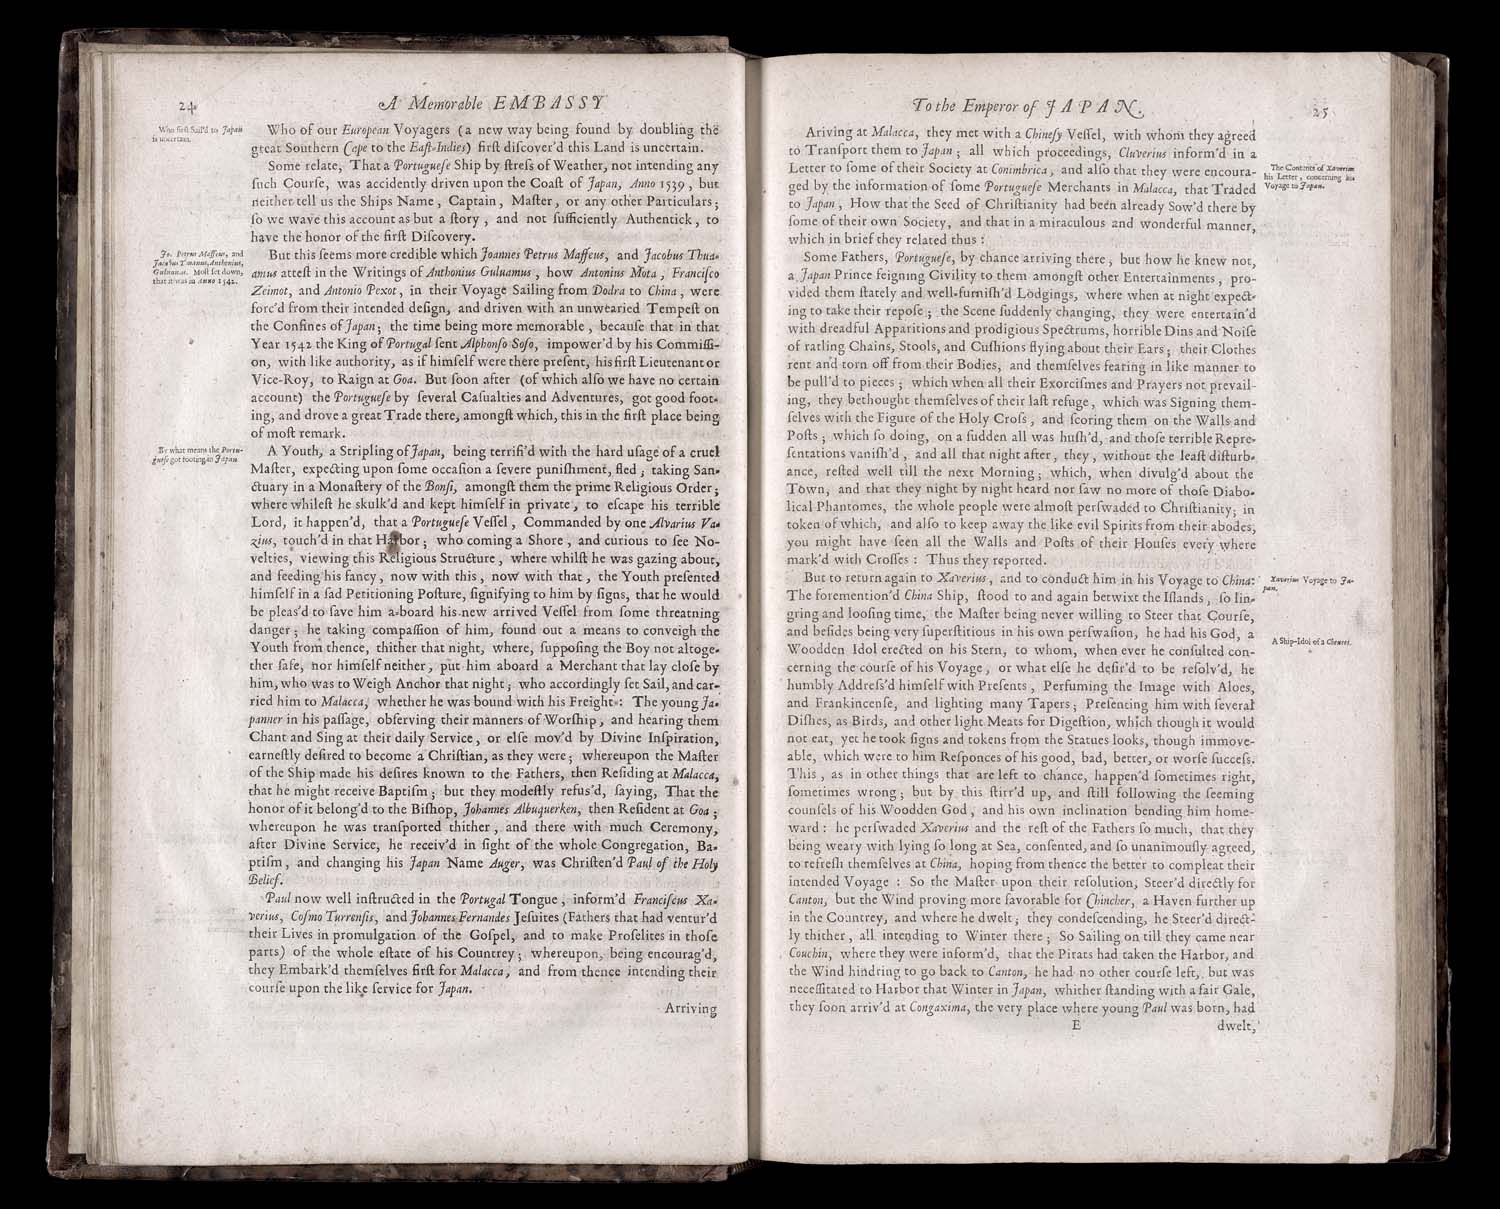 24
A Memorable EMBASSY
Who first Sail'd to Japan
is uncertain.
Who of our European Voyagers (a new way being found by doubling the
great Southern Cape to the Eaſt-Indies) firſt diſcover'd this Land is uncertain.
Some relate, That a Portugueſe Ship by ſtreſs of Weather, not intending any
ſuch Courſe, was accidently driven upon the Coaſt of Japan, Anno 1539, but
neither tell us the Ships Name, Captain, Maſter, or any other Particulars;
ſo we wave this account as but a ſtory, and not ſufficiently Authentick, to
have the honor of the firſt Diſcovery.
Jo. Petrus Maffeus, and
Jacobus Tuanus, Anthonius,
Guluamus. Moſt ſet down,
that it was in Anno 1542.
But this ſeems more credible which Joannes Petrus Maffeus, and Jacobus Thua-
amus atteſt in the Writings of Anthonius Guluamus, how Antonius Mota, Franciſco
Zeimot, and Antonio Pexot, in their Voyage Sailing from Dodra to China, were
forc'd from their intended deſign, and driven with an unwearied Tempeſt on
the Confines of Japan; the time being more memorable, becauſe that in that
Year 1542 the King of Portugal ſent Alphonſo Soſo, impower'd by his Commiſſi-
on, with like authority, as if himſelf were there preſent, his firſt Lieutenant or
Vice-Roy, to Raign at Goa. But ſoon after (of which alſo we have no certain
account) the Portugueſe by ſeveral Caſualties and Adventures, got good foot-
ing, and drove a great Trade there, amongſt which, this in the firſt place being
of moſt remark.
By what means the Portu-
gueſe got footing in Japan.
A Youth, a Stripling of Japan, being terrifi'd with the hard uſage of a cruel
Maſter, expecting upon ſome occaſion a ſevere puniſhment, fled; taking San-
ctuary in a Monaſtery of the Bonſi, amongſt them the prime Religious Order;
where whileſt he skulk'd and kept himſelf in private, to eſcape his terrible
Lord, it happen'd, that a Portugueſe Veſſel, Commanded by one Alvarius Va-
zius, touch'd in that Harbor; who coming a Shore, and curious to ſee No-
velties, viewing this Religious Structure, where whilſt he was gazing about,
and feeding his fancy, now with this, now with that, the Youth preſented
himſelf in a ſad Petitioning Poſture, ſignifying to him by ſigns, that he would
be pleas'd to ſave him a-board his new arrived Veſſel from ſome threatning
danger; he taking compaſſion of him, found out a means to conveigh the
Youth from thence, thither that night, where, ſuppoſing the Boy not altoge-
ther ſafe, nor himſelf neither, put him aboard a Merchant that lay cloſe by
him, who was to Weigh Anchor that night; who accordingly ſet Sail, and car-
ried him to Malacca, whether he was bound with his Freight: The young Ja-
panner in his paſſage, obſerving their manners of Worſhip, and hearing them
Chant and Sing at their daily Service, or elſe mov'd by Divine Inſpiration,
earneſtly deſired to become a Chriſtian, as they were; whereupon the Maſter
of the Ship made his deſires known to the Fathers, then Reſiding at Malacca,
that he might receive Baptiſm; but they modeſtly refus'd, ſaying, That the
honor of it belong'd to the Biſhop, Johannes Albuquerken, then Reſident at Goa;
whereupon he was tranſported thither, and there with much Ceremony,
after Divine Service, he receiv'd in ſight of the whole Congregation, Ba-
ptiſm, and changing his Japan Name Auger, was Chriſten'd Paul of the Holy
Belief.
Paul now well inſtructed in the Portugal Tongue, inform'd Franciſcus Xa-
verius, Coſmo Turrenſis, and Johannes Fernandes Jeſuites (Fathers that had ventur'd
their Lives in promulgation of the Goſpel, and to make Proſelites in thoſe
parts) of the whole eſtate of his Countrey; whereupon, being encourag'd,
they Embark'd themſelves firſt for Malacca, and from thence intending their
courſe upon the like ſervice for Japan.
Arriving
To the Emperor of JAPAN.
25
Ariving at Malacca, they met with a Chineſy Veſſel, with whom they agreed
to Tranſport them to Japan; all which proceedings, Cluverius inform'd in a
Letter to ſome of their Society at Conimbrica, and alſo that they were encoura-
ged by the information of ſome Portugueſe Merchants in Malacca, that Traded
to Japan, How that the Seed of Chriſtianity had been already Sow'd there by
ſome of their own Society, and that in a miraculous and wonderful manner,
which in brief they related thus:
The Contents of Xaverius
his Letter, concerning his
Voyage to Japan.
Some Fathers, Portugueſe, by chance arriving there, but how he knew not,
a Japan Prince feigning Civility to them amongſt other Entertainments, pro-
vided them ſtately and well-furniſh'd Lodgings, where when at night expect-
ing to take their repoſe; the Scene ſuddenly changing, they were entertain'd
with dreadful Apparitions and prodigious Spectrums, horrible Dins and Noiſe
of ratling Chains, Stools, and Cuſhions flying about their Ears; their Clothes
rent and torn off from their Bodies, and themſelves fearing in like manner to
be pull'd to pieces; which when all their Exorciſmes and Prayers not prevail-
ing, they bethought themſelves of their laſt refuge, which was Signing them-
ſelves with the Figure of the Holy Croſs, and ſcoring them on the Walls and
Poſts; which ſo doing, on a ſudden all was huſh'd, and thoſe terrible Repre-
ſentations vaniſh'd, and all that night after, they, without the leaſt diſturb-
ance, reſted well till the next Morning; which, when divulg'd about the
Town, and that they night by night heard nor ſaw no more of thoſe Diabo-
lical Phantomes, the whole people were almoſt perſwaded to Chriſtianity; in
token of which, and alſo to keep away the like evil Spirits from their abodes,
you might have ſeen all the Walls and Poſts of their Houſes every where
mark'd with Croſſes: Thus they reported.
But to return again to Xaverius, and to conduct him in his Voyage to China:
The foremention'd China Ship, ſtood to and again betwixt the Iſlands, ſo lin-
gring and looſing time, the Maſter being never willing to Steer that Courſe,
and beſides being very ſuperſtitious in his own perſwaſion, he had his God, a
Woodden Idol erected on his Stern, to whom, when ever he conſulted con-
cerning the courſe of his Voyage, or what elſe he deſir'd to be reſolv'd, he
humbly Addreſs'd himſelf with Preſents, Perfuming the Image with Aloes,
and Frankincenſe, and lighting many Tapers; Preſenting him with ſeveral
Diſhes, as Birds, and other light Meats for Digeſtion, which though it would
not eat, yet he took ſigns and tokens from the Statues looks, though immove-
able, which were to him Reſponces of his good, bad, better, or worſe ſucceſs.
This, as in other things that are left to chance, happen'd ſometimes right,
ſometimes wrong; but by this ſtirr'd up, and ſtill following the ſeeming
counſels of his Woodden God, and his own inclination bending him home-
ward: he perſwaded Xaverius and the reſt of the Fathers ſo much, that they
being weary with lying ſo long at Sea, conſented, and ſo unanimouſly agreed,
to refreſh themſelves at China, hoping from thence the better to compleat their
intended Voyage: So the Maſter upon their reſolution, Steer'd directly for
Canton, but the Wind proving more favorable for Chincher, a Haven further up
in the Countrey, and where he dwelt; they condeſcending, he Steer'd direct-
ly thither, all intending to Winter there; So Sailing on till they came near
Couchin, where they were inform'd, that the Pirats had taken the Harbor, and
the Wind hindring to go back to Canton, he had no other courſe left, but was
neceſſitated to Harbor that Winter in Japan, whither ſtanding with a fair Gale,
they ſoon arriv'd at Congaxima, the very place where young Paul was born, had
Xaverius Voyage to Ja-
pan.
A Ship-Idol of a Chineſes.
E
dwelt,